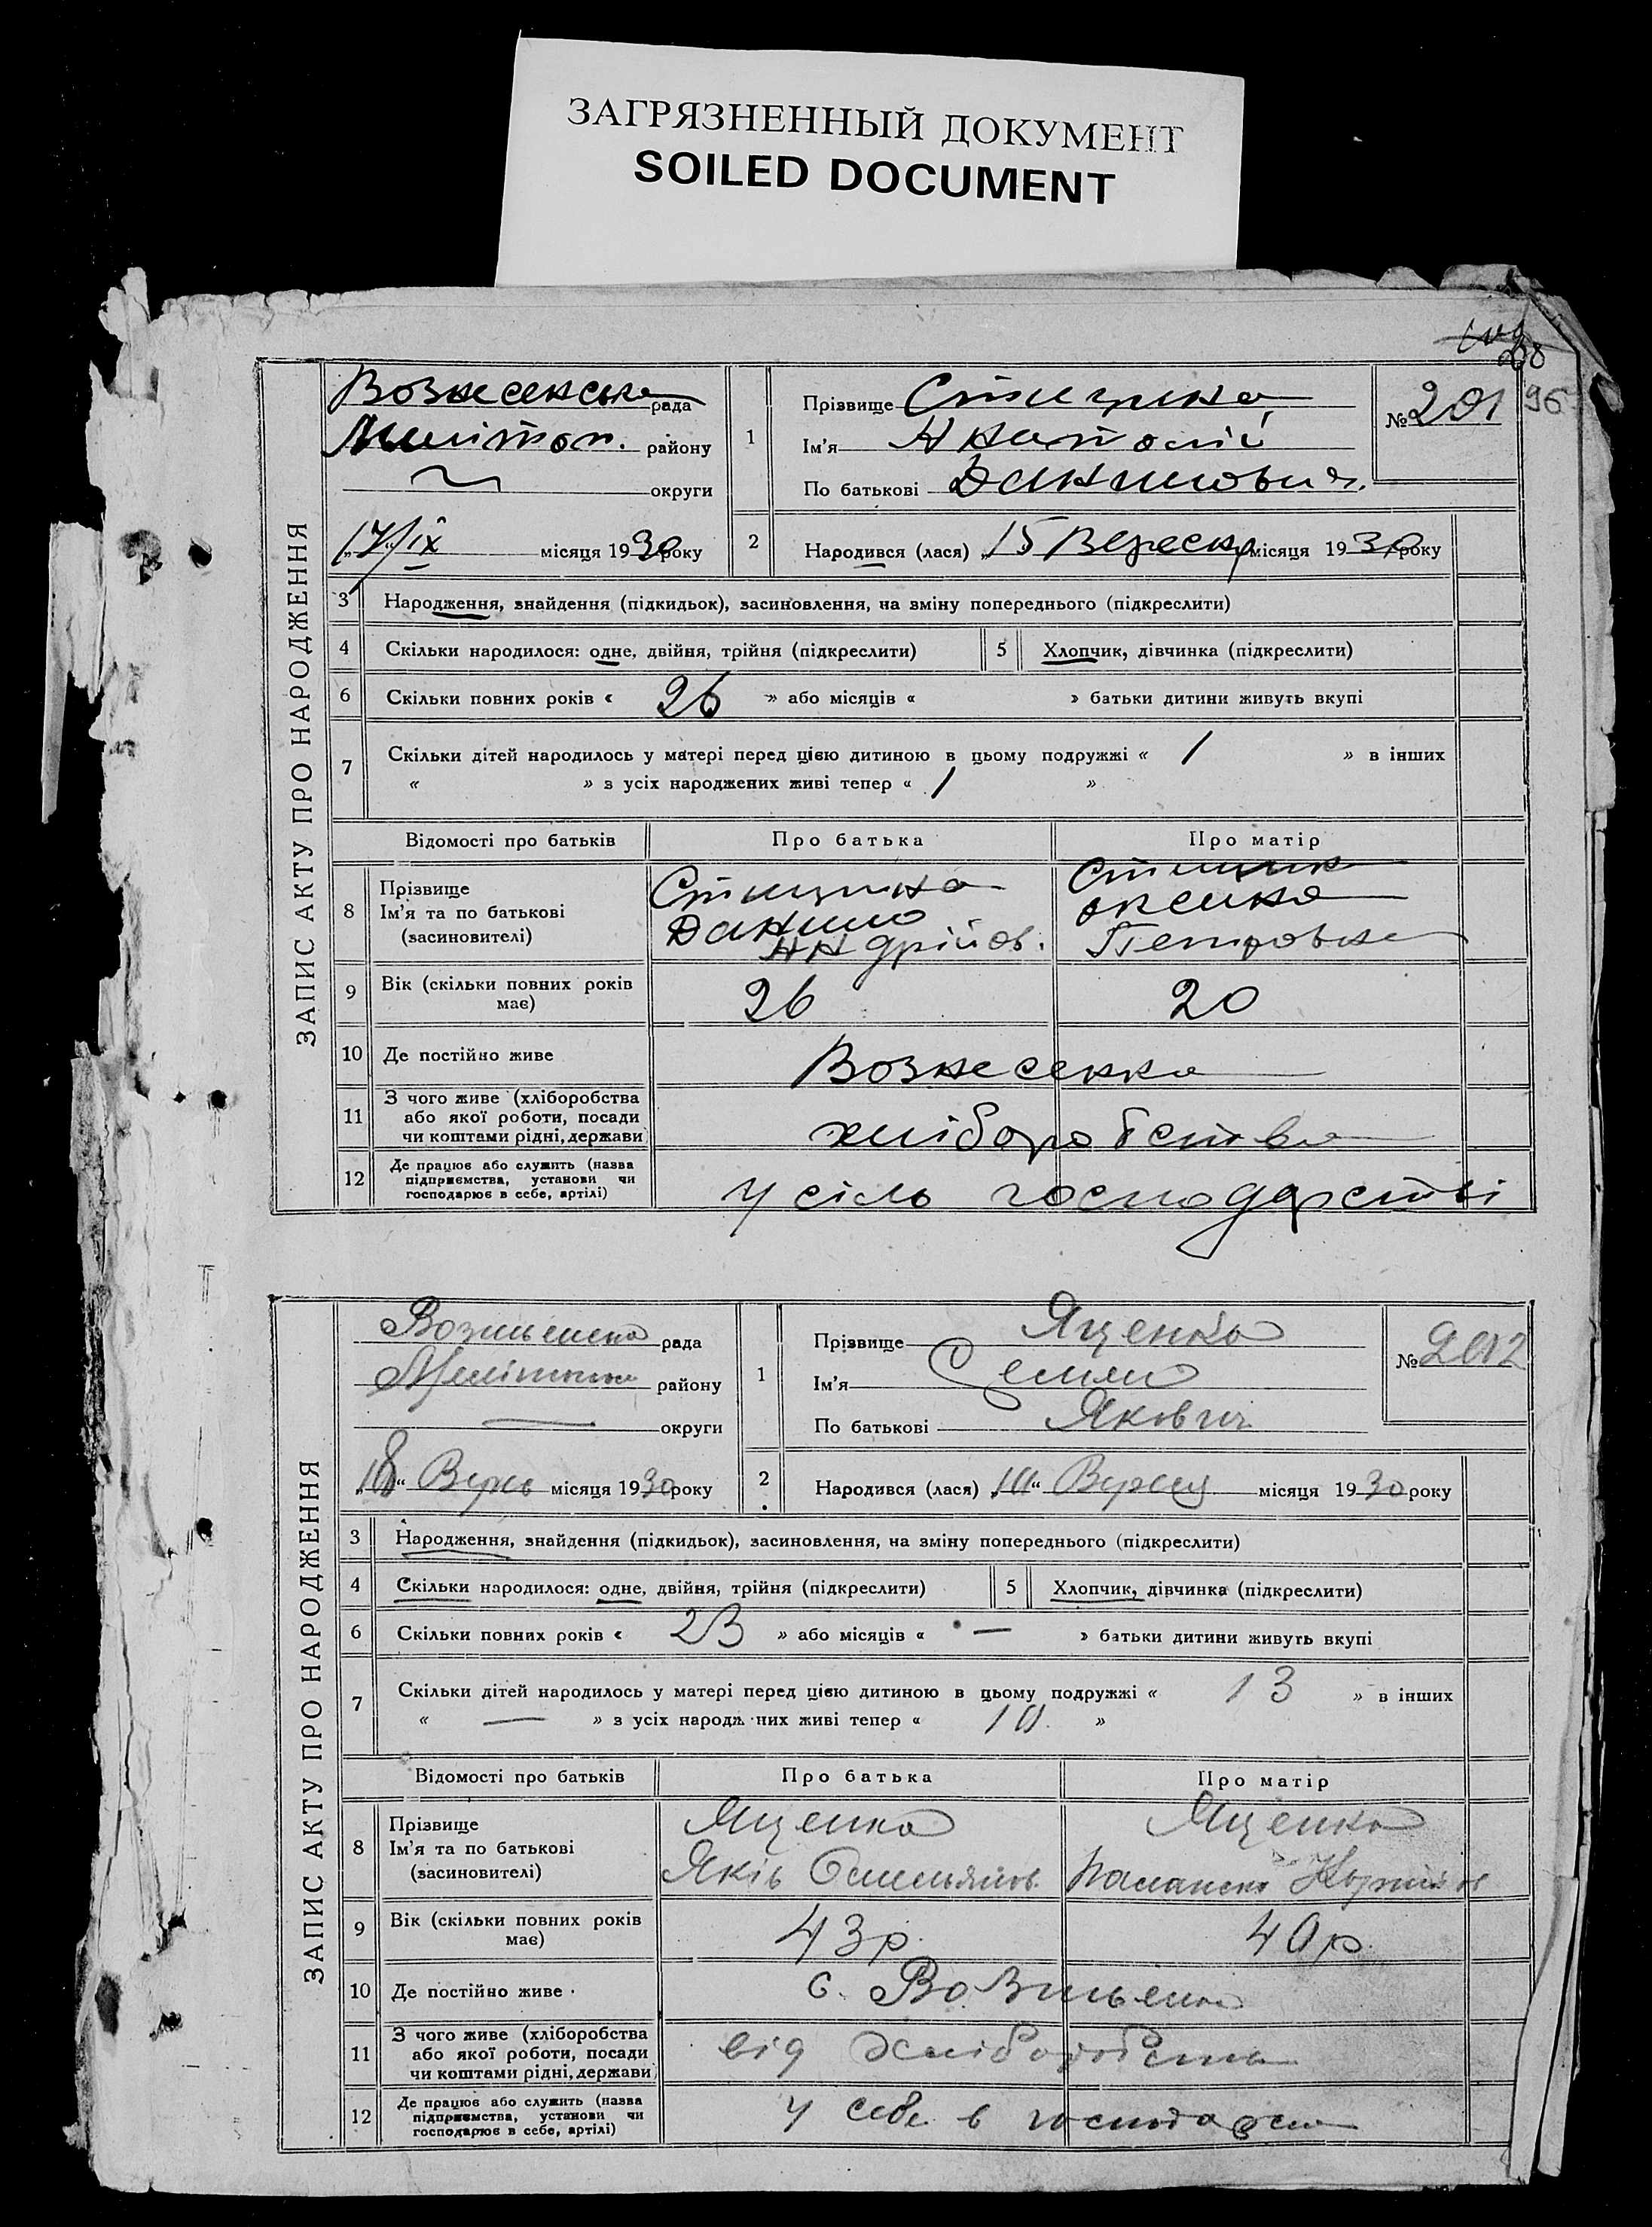 ЗАГРЯЗНЕННЫЙ ДОКУМЕНТ
SOILED DOCUMENT
96
ЗАПИС АКТУ ПРО НАРОДЖЕННЯ
Вознесенська рада
Мелітоп. району
округи
17/ІХ місяця 1930 року
1 Прізвище
Ім'я Анатолій
По батькові Данилович
№ 201
2 Народився (лася) „15 Вересня місяця 1930 року
3 Народження, знайдення (підкидьок), засиновлення, на зміну попереднього (підкреслити)
4 Скільки народилося: одне, двійня, трійня (підкреслити) 5 Хлопчик, дівчинка (підкреслити)
6 Скільки повних років « 26 » або місяців « » батьки дитини живуть вкупі
7 Скільки дітей народилось у матері перед цією дитиною в цьому подружжі « 1 » в інших
« » з усіх народжених живі тепер « 1 »
Відомості про батьків Про батька Про матір
8 Прізвище
Ім'я та по батькові
(засиновителі)
Данило
Андрійов.
Оксана
Петровна
9 Вік (скільки повних років
має) 26 20
10 Де постійно живе Вознесенка
11 З чого живе (хліборобства
або якої роботи, посади
чи коштами рідні, держави) хліборобства
12 Де працює або служить (назва
підприємства, установи чи
господарює в себе, артілі) у сіль господарстві
ЗАПИС АКТУ ПРО НАРОДЖЕННЯ
рада
району
округи
„18“ Верес місяця 1930 року
1 Прізвище Яценко
Ім'я Семен
По батькові Якович
№ 202
2 Народився (лася) „10“ Вересня місяця 1930 року
3 Народження, знайдення (підкидьок), засиновлення, на зміну попереднього (підкреслити)
4 Скільки народилося: одне, двійня, трійня (підкреслити) 5 Хлопчик, дівчинка (підкреслити)
6 Скільки повних років « 23 » або місяців « — » батьки дитини живуть вкупі
7 Скільки дітей народилось у матері перед цією дитиною в цьому подружжі « 13 » в інших
« — » з усіх народжених живі тепер « 10 »
Відомості про батьків Про батька Про матір
8 Прізвище
Ім'я та по батькові
(засиновителі)
Яценко
Яків Омельянов.
Яценко
9 Вік (скільки повних років
має) 43 р. 40 р.
10 Де постійно живе с.
11 З чого живе (хліборобства
або якої роботи, посади
чи коштами рідні, держави) від хліборобства
12 Де працює або служить (назва
підприємства, установи чи
господарює в себе, артілі) у себе в